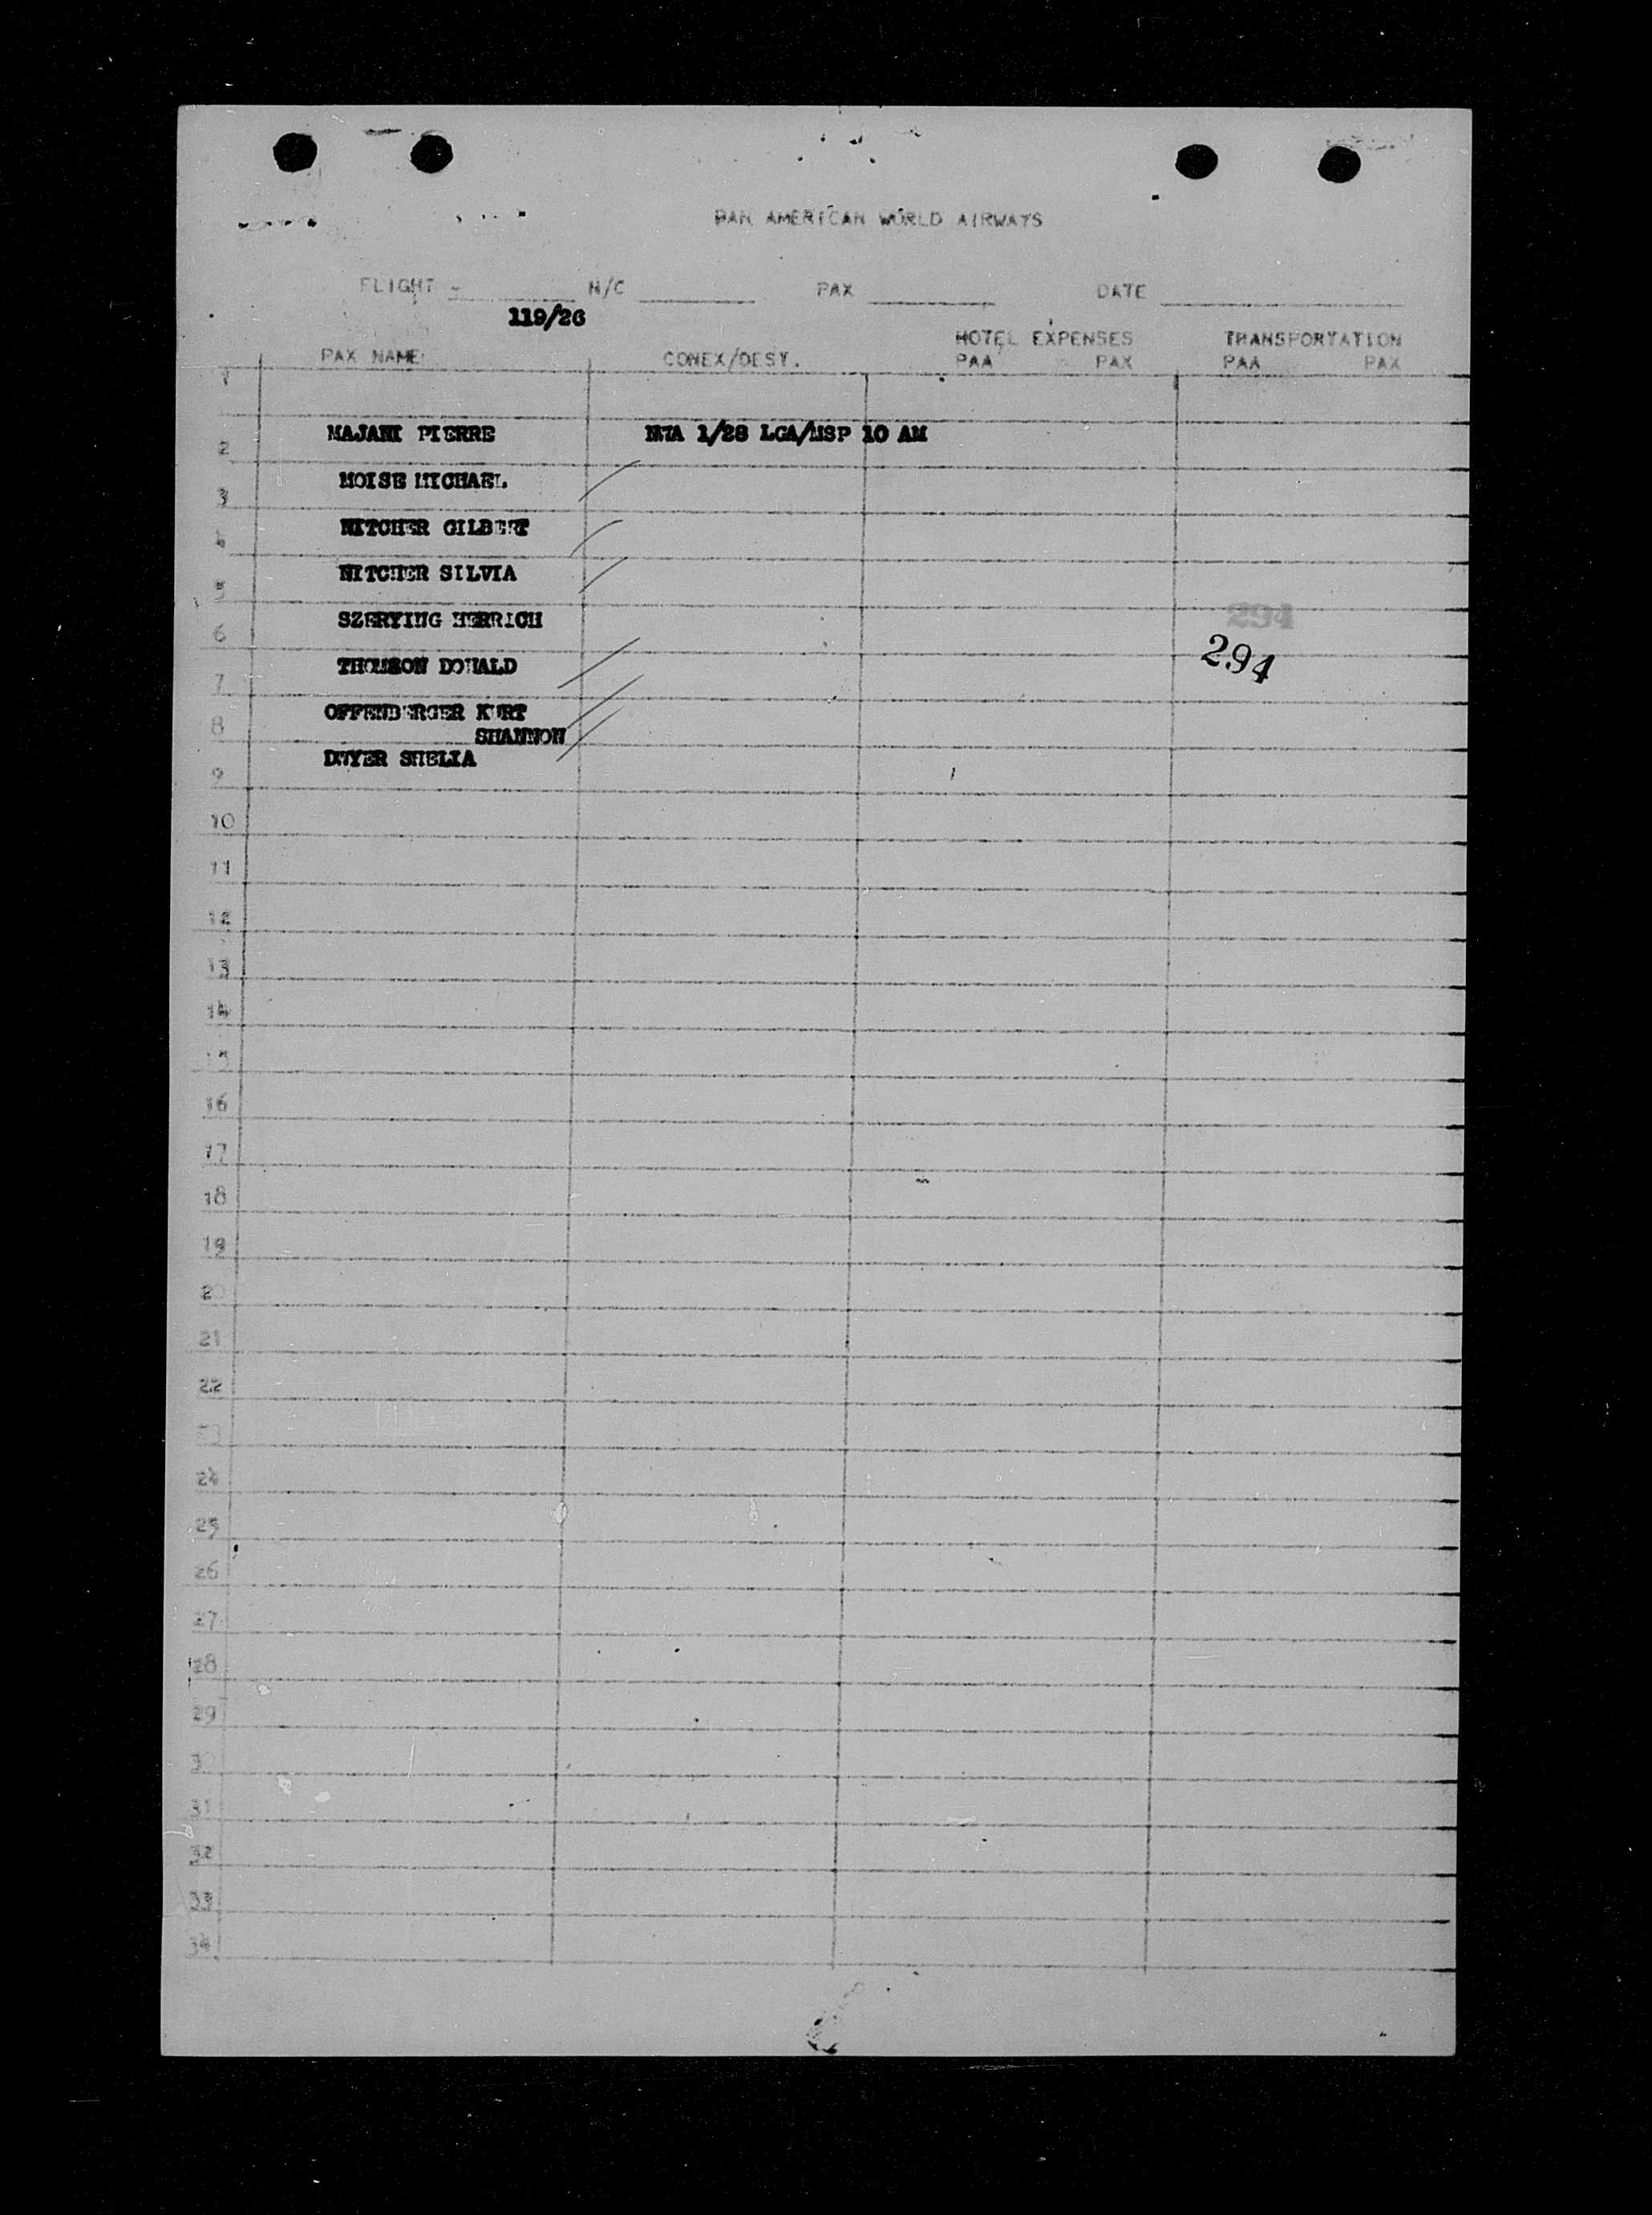 PAN AMERICAN WORLD AIRWAYS
FLIGHT - N/C PAX DATE
119/26
HOTEL EXPENSES TRANSPORTATION
PAX NAME CONEX/DEST. PAA PAX PAA PAX
1
MAJANI PIERRE 1/28 LGA/MSP 10 AM
2
MOISE MICHAEL
3
NITCHER GILBERT
4
NITCHER SILVIA
5
SZERYING HERRICH 294
6
294
THOMSON DONALD
7
OFFENBERGER KURT
8 SHANNON
DWYER SHELIA
9
10
11
12
13
14
15
16
17
18
19
20
21
22
23
24
25
26
27
28
29
30
31
32
33
34